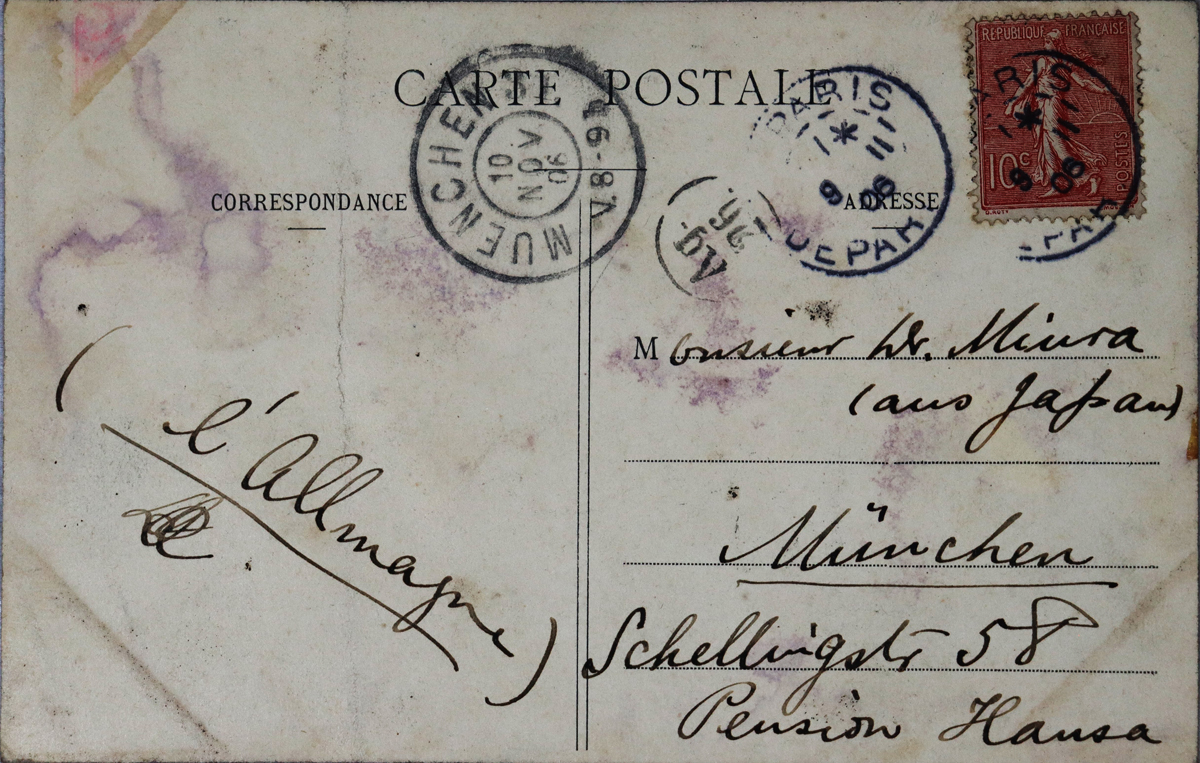 CARTE POSTALE
REPUBLIQUE FRANÇAISE
10c
POSTES
PARIS
* 11
9 06
DEPART
PARIS
* 11
9 06
DEPAR
MUENCHEN
10
NOV
06
V.8-9
Av.
26.
CORRESPONDANCE
ADRESSE
Monsieur Dr. Miura
(aus Japan)
München
Schellingstr 58
Pension Hansa
(l'Allmagne)